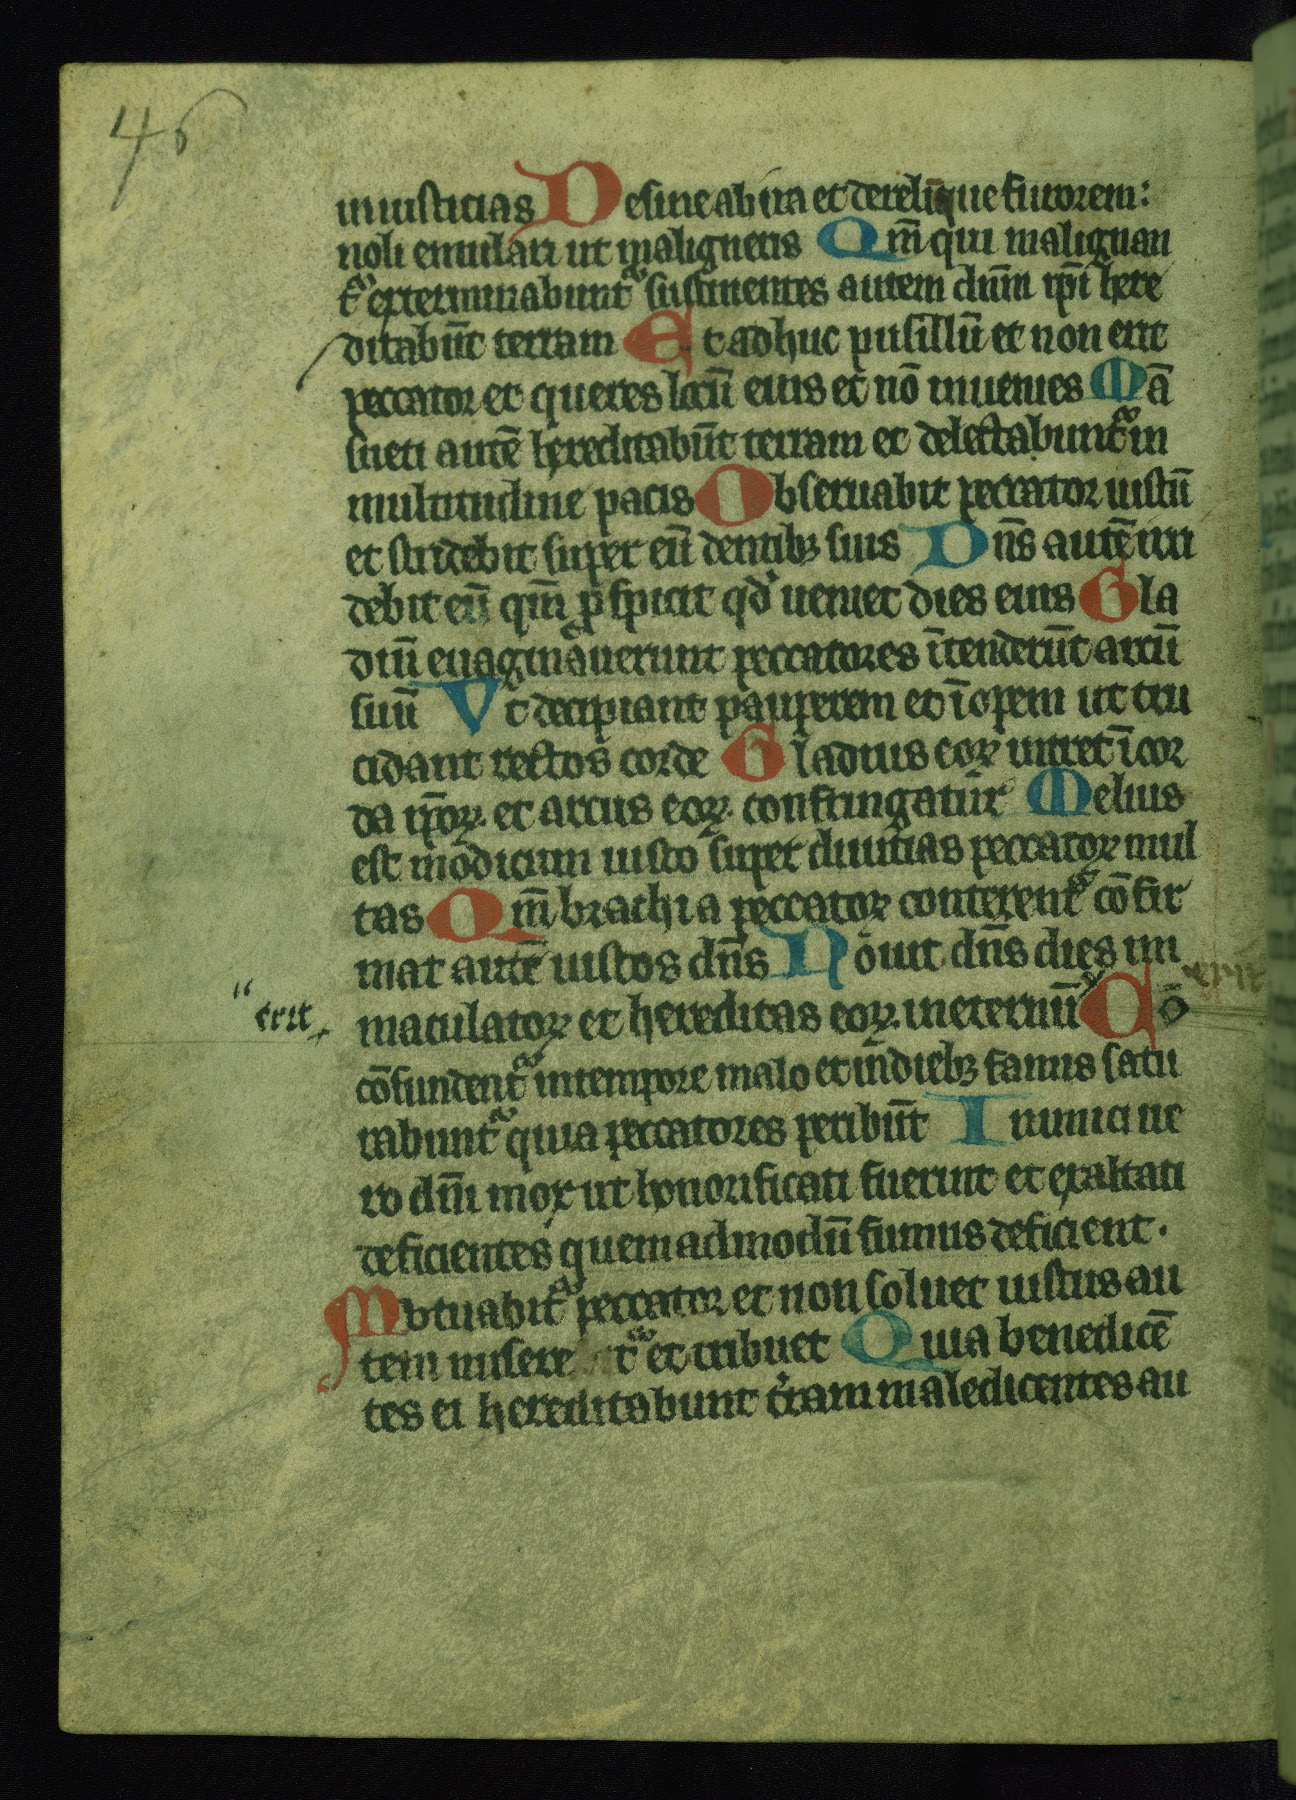 46
iniusticias Desine ab ira et derelīque furorem:
noli emulari ut maligneris Qm̄ qui malignan
tᷣ exterminabuntᷣ sustinentes autem dn̄m ip̄i here
ditabūt terram Et adhuc pusillū et non erit
peccator et queres locū eius et nō inuenies Mā
sueti autē hereditabūt terram et delectabuntᷣ in
multitudine pacis Obseruabit peccator iustū
et stridebit super eū dentibꝫ suis Dn̄s autē irri
debit eū qm̄ ꝓspicit qd' ueniet dies eius Gla
diū euaginauerunt peccatores ītenderūt arcū
suū Vt decipiant pauperem et īopem ut tru
cidant rectos corde Gladius eoꝝ intret ī cor
da ip̄oꝝ. et arcus eoꝝ. confringatur Melius
est modicum iusto super diuitias peccatoꝝ mul
tas Qm̄ brachia peccatoꝝ conterentᷣ cōfir
mat autē iustos dn̄s Nouit dn̄s dies im
erit
maculatoꝝ et hereditas eoꝝ. in eternū Nō
erit
cōfundentᷣ in tempore malo et in diebꝫ famis satu
rabuntᷣ quia peccatores peribūt Inimici ue
ro dn̄i mox ut honorificati fuerint et exaltati
deficientes quemadmodū fumus deficient.
Mutuabitᷣ peccator et non soluet iustus au
tem misere tᷣ et tribuet Quia benedicē
tes ei hereditabunt t'ram maledicentes au